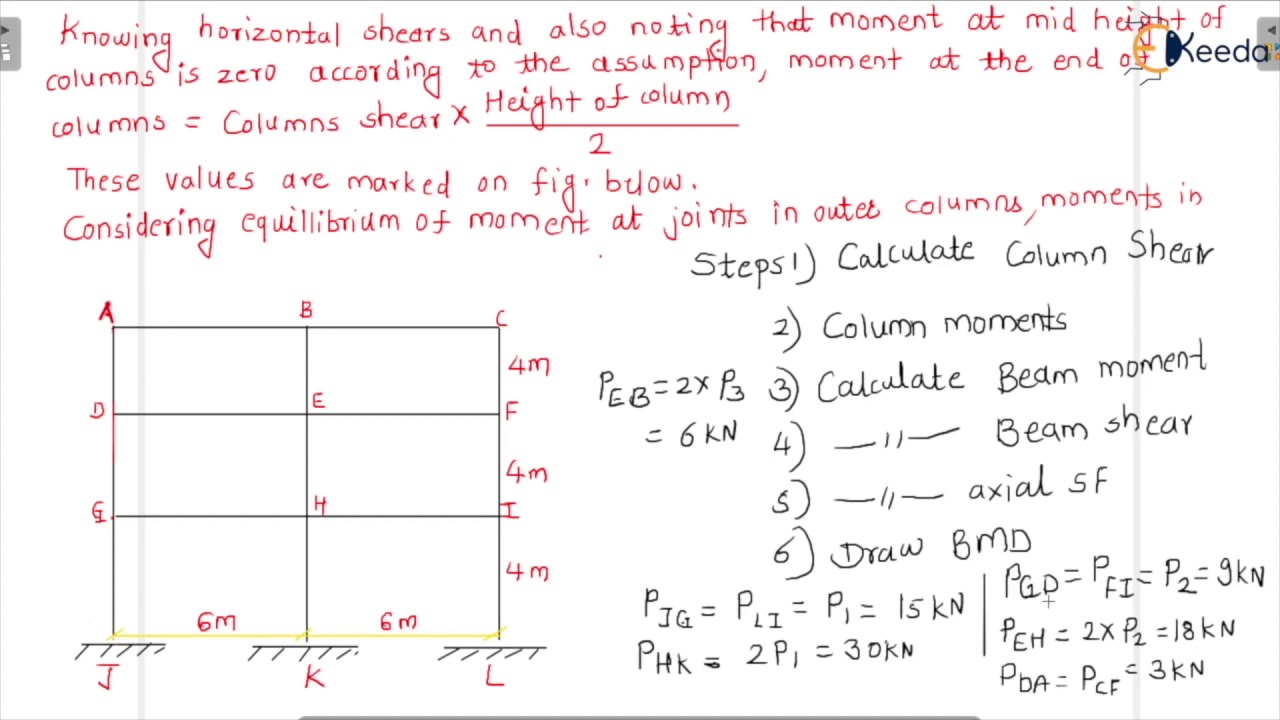 Knowing horizontal shears and also noting that moment at mid height of
columns is zero according to the assumption, moment at the end of
columns = Columns shear × Height of column
2
These values are marked on fig. below.
Considering equillibrium of moment at joints in outer columns, moments in
Keeda
Steps 1) Calculate Column Shear
2) Column moments
3) Calculate Beam moment
4) —〃— Beam shear
5) —〃— axial SF
6) Draw BMD
P_EB = 2 × P_3
= 6 KN
A B C
4m
D E F
4m
G H I
4m
6m 6m
J K L
P_JG = P_LI = P_1 = 15 KN
P_HK = 2P_1 = 30KN
P_GD = P_FI = P_2 = 9KN
P_EH = 2 × P_2 = 18KN
P_DA = P_CF = 3KN